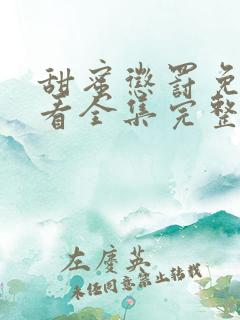 甜蜜惩罚免
看全集完整
左庆英
未经同意禁止转载